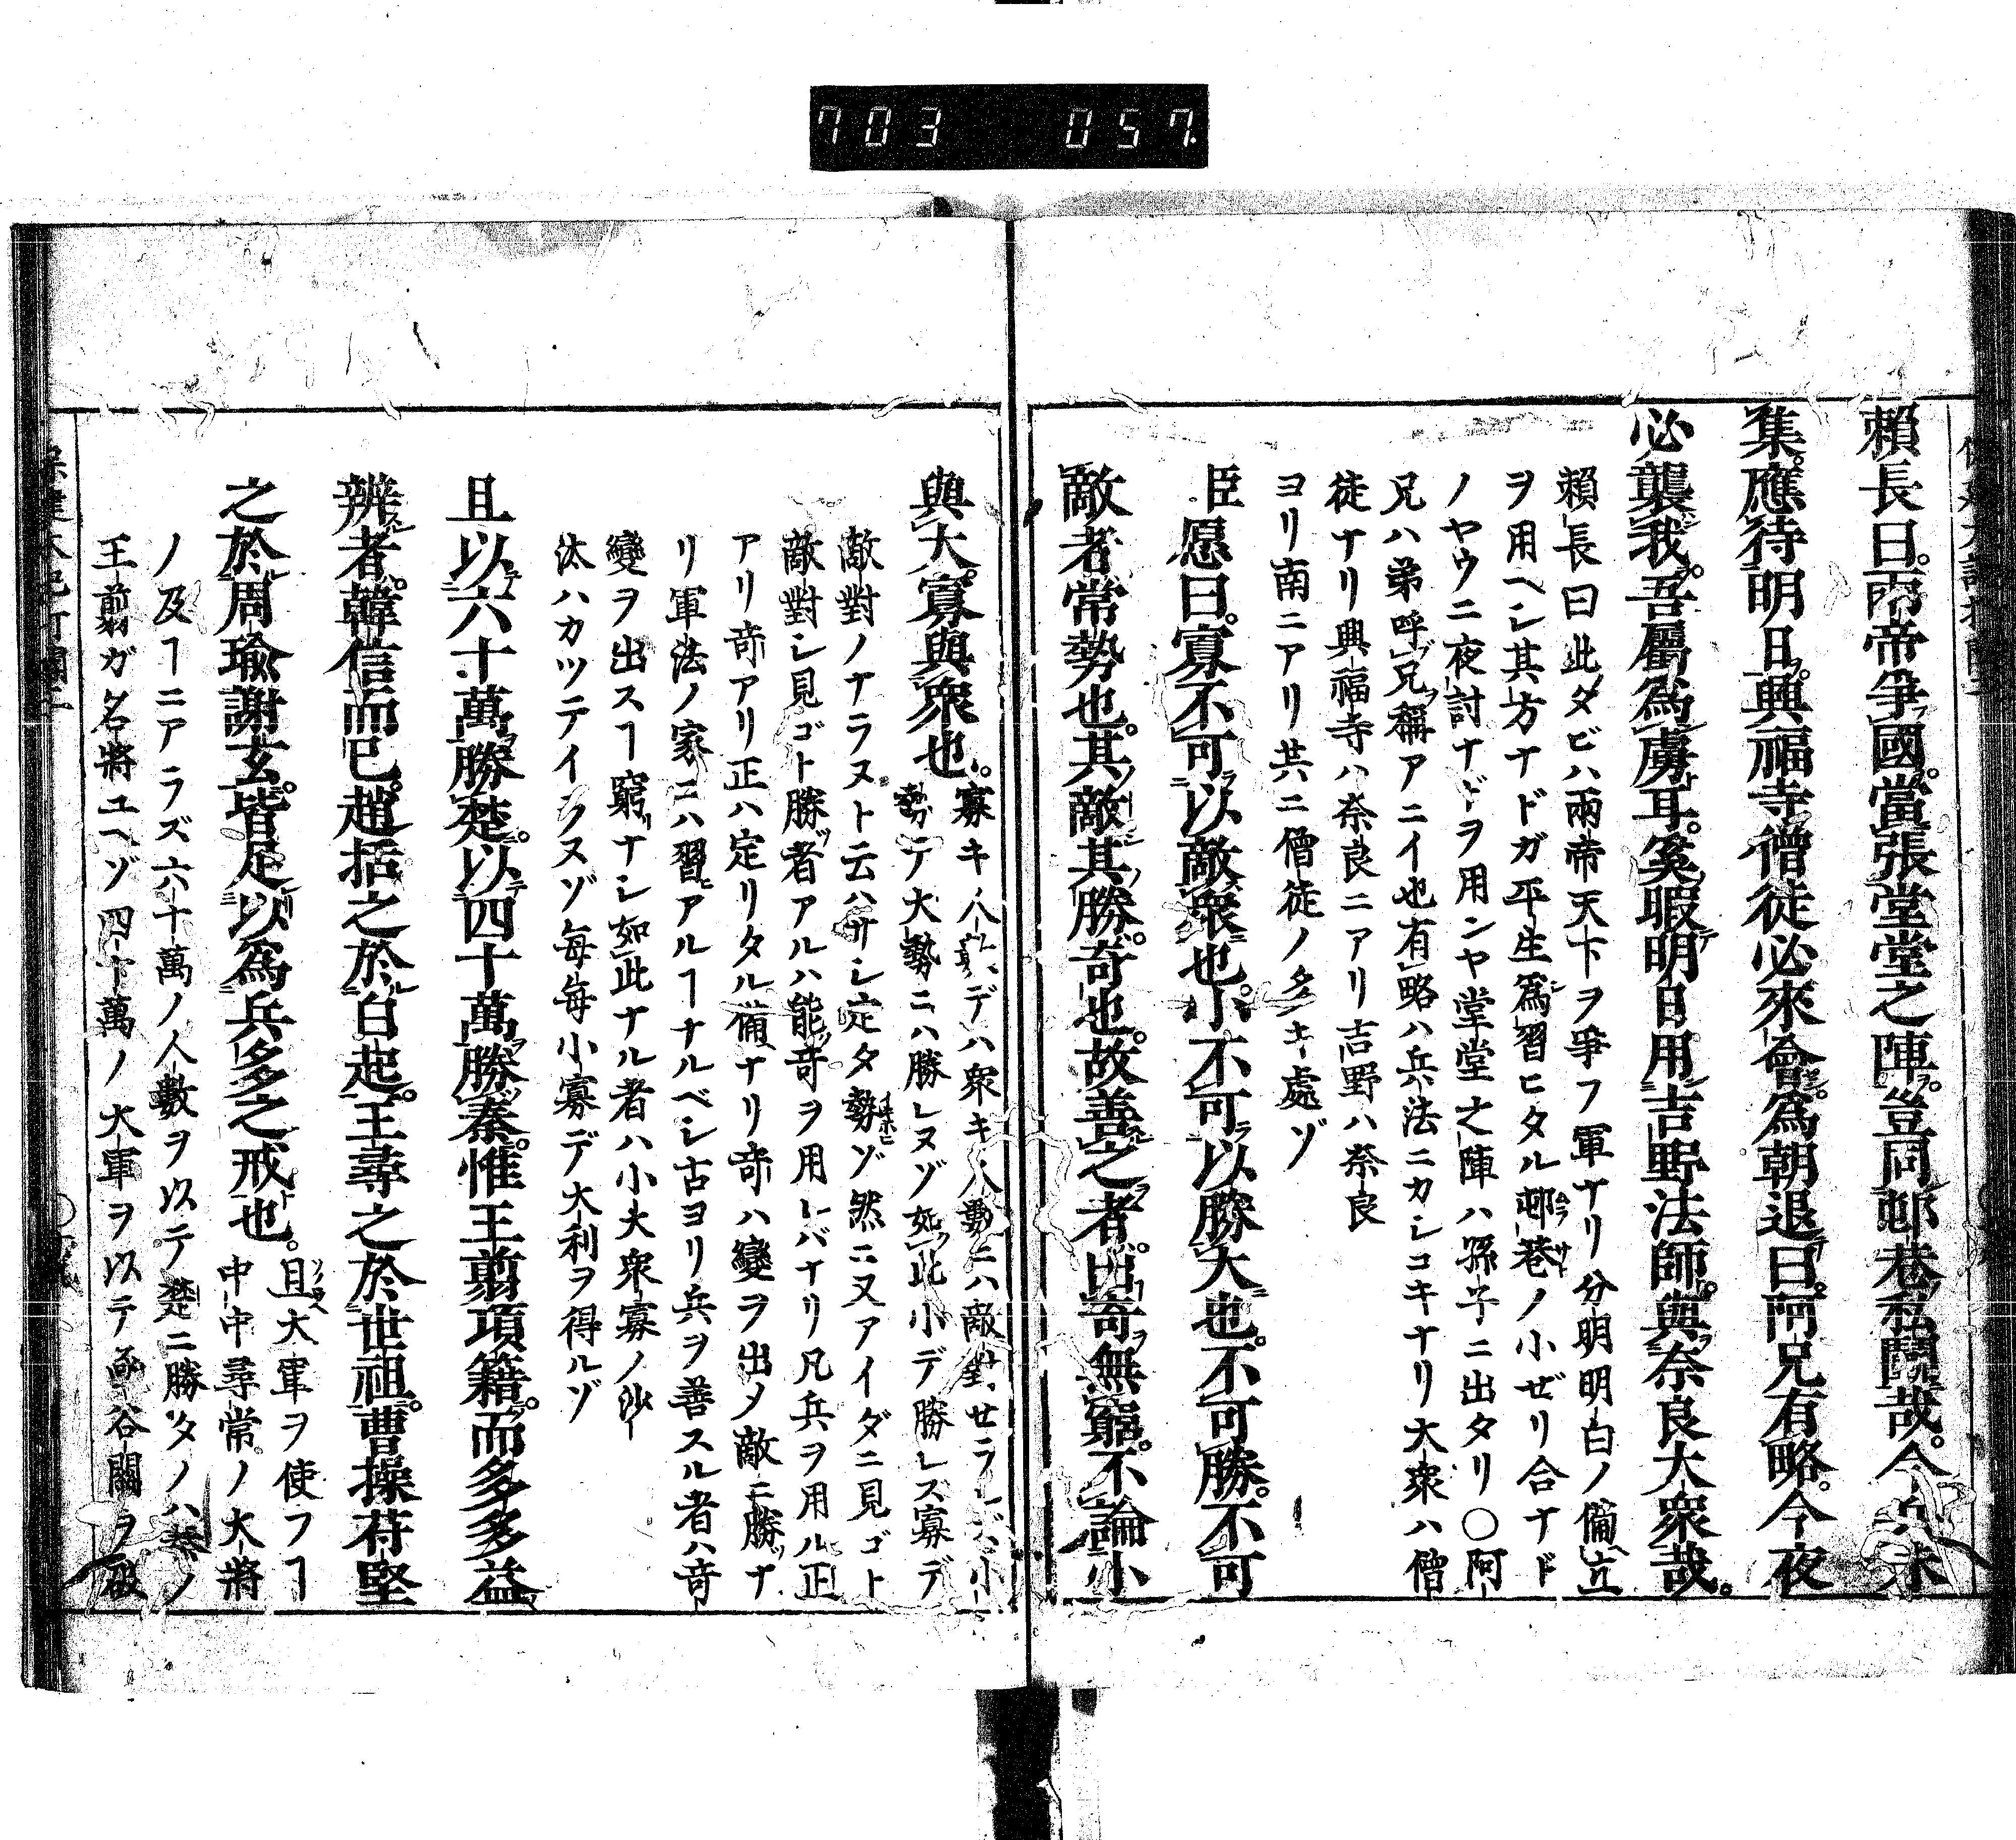 703 057
頼長曰。兩帝爭國。當張堂堂之陣。豈同邨巷私鬪哉。今兵未
集。應待明日。興福寺僧徒必來會。爲朝退曰。阿兄有略。今夜
必襲我。吾屬爲虜耳。奚暇明日用吉野法師。與奈良大衆哉。
頼長曰此タビハ兩帝天下ヲ爭フ軍ナリ分明明白ノ備立
ヲ用ヘシ其方ナドガ平生爲習ヒタル邨巷ノ小ぜリ合ナド
ノヤウニ夜討ナドヲ用ンヤ堂堂之陣ハ孫子ニ出タリ〇阿
兄ハ弟呼兄稱アニイ也有略ハ兵法ニカシコキナリ大衆ハ僧
徒ナリ興福寺ハ奈良ニアリ吉野ハ奈良
ヨリ南ニアリ共ニ僧徒ノ多キ處ゾ
臣愿曰。寡不可以敵衆也。小不可以勝大也。不可勝。不可
敵者常勢也。其敵其勝。奇也。故善之者。出奇無窮。不論小
與大。寡與衆也。
寡キ人デハ衆キ人數ニハ敵對せラレ小
勢デ大勢ニハ勝レヌゾ如此小デ勝レズ寡デ
敵對ノナラヌト云ハサシ定タ勢ゾ然ニ又アイダニ見ゴト
敵對シ見ゴト勝者アルハ能奇ヲ用レバナリ凡兵ヲ用ル正
アリ奇アリ正ハ定リタル備ナリ奇ハ變ヲ出メ敵ニ勝ナ
リ軍法ノ家ニハ習アルヿナルベシ古ヨリ兵ヲ善スル者ハ奇
變ヲ出スヿ窮ナシ如此ナル者ハ小大衆寡ノ沙
汰ハカツテイラヌゾ毎毎小寡デ大利ヲ得ルゾ
且以六十萬勝楚。以四十萬勝秦。惟王翦項籍。而多多益
辨者。韓信而已。趙括之於白起。王尋之於世祖。曹操苻堅
之於周瑜謝玄。皆足以爲兵多之戒也。
且大軍ヲ使フヿ
中中尋常ノ大將
ノ及ヿニアラズ六十萬ノ人數ヲ以テ楚ニ勝タノハ秦ノ
王翦ガ名將ユヘゾ四十萬ノ大軍ヲ以テ函谷關ヲ破